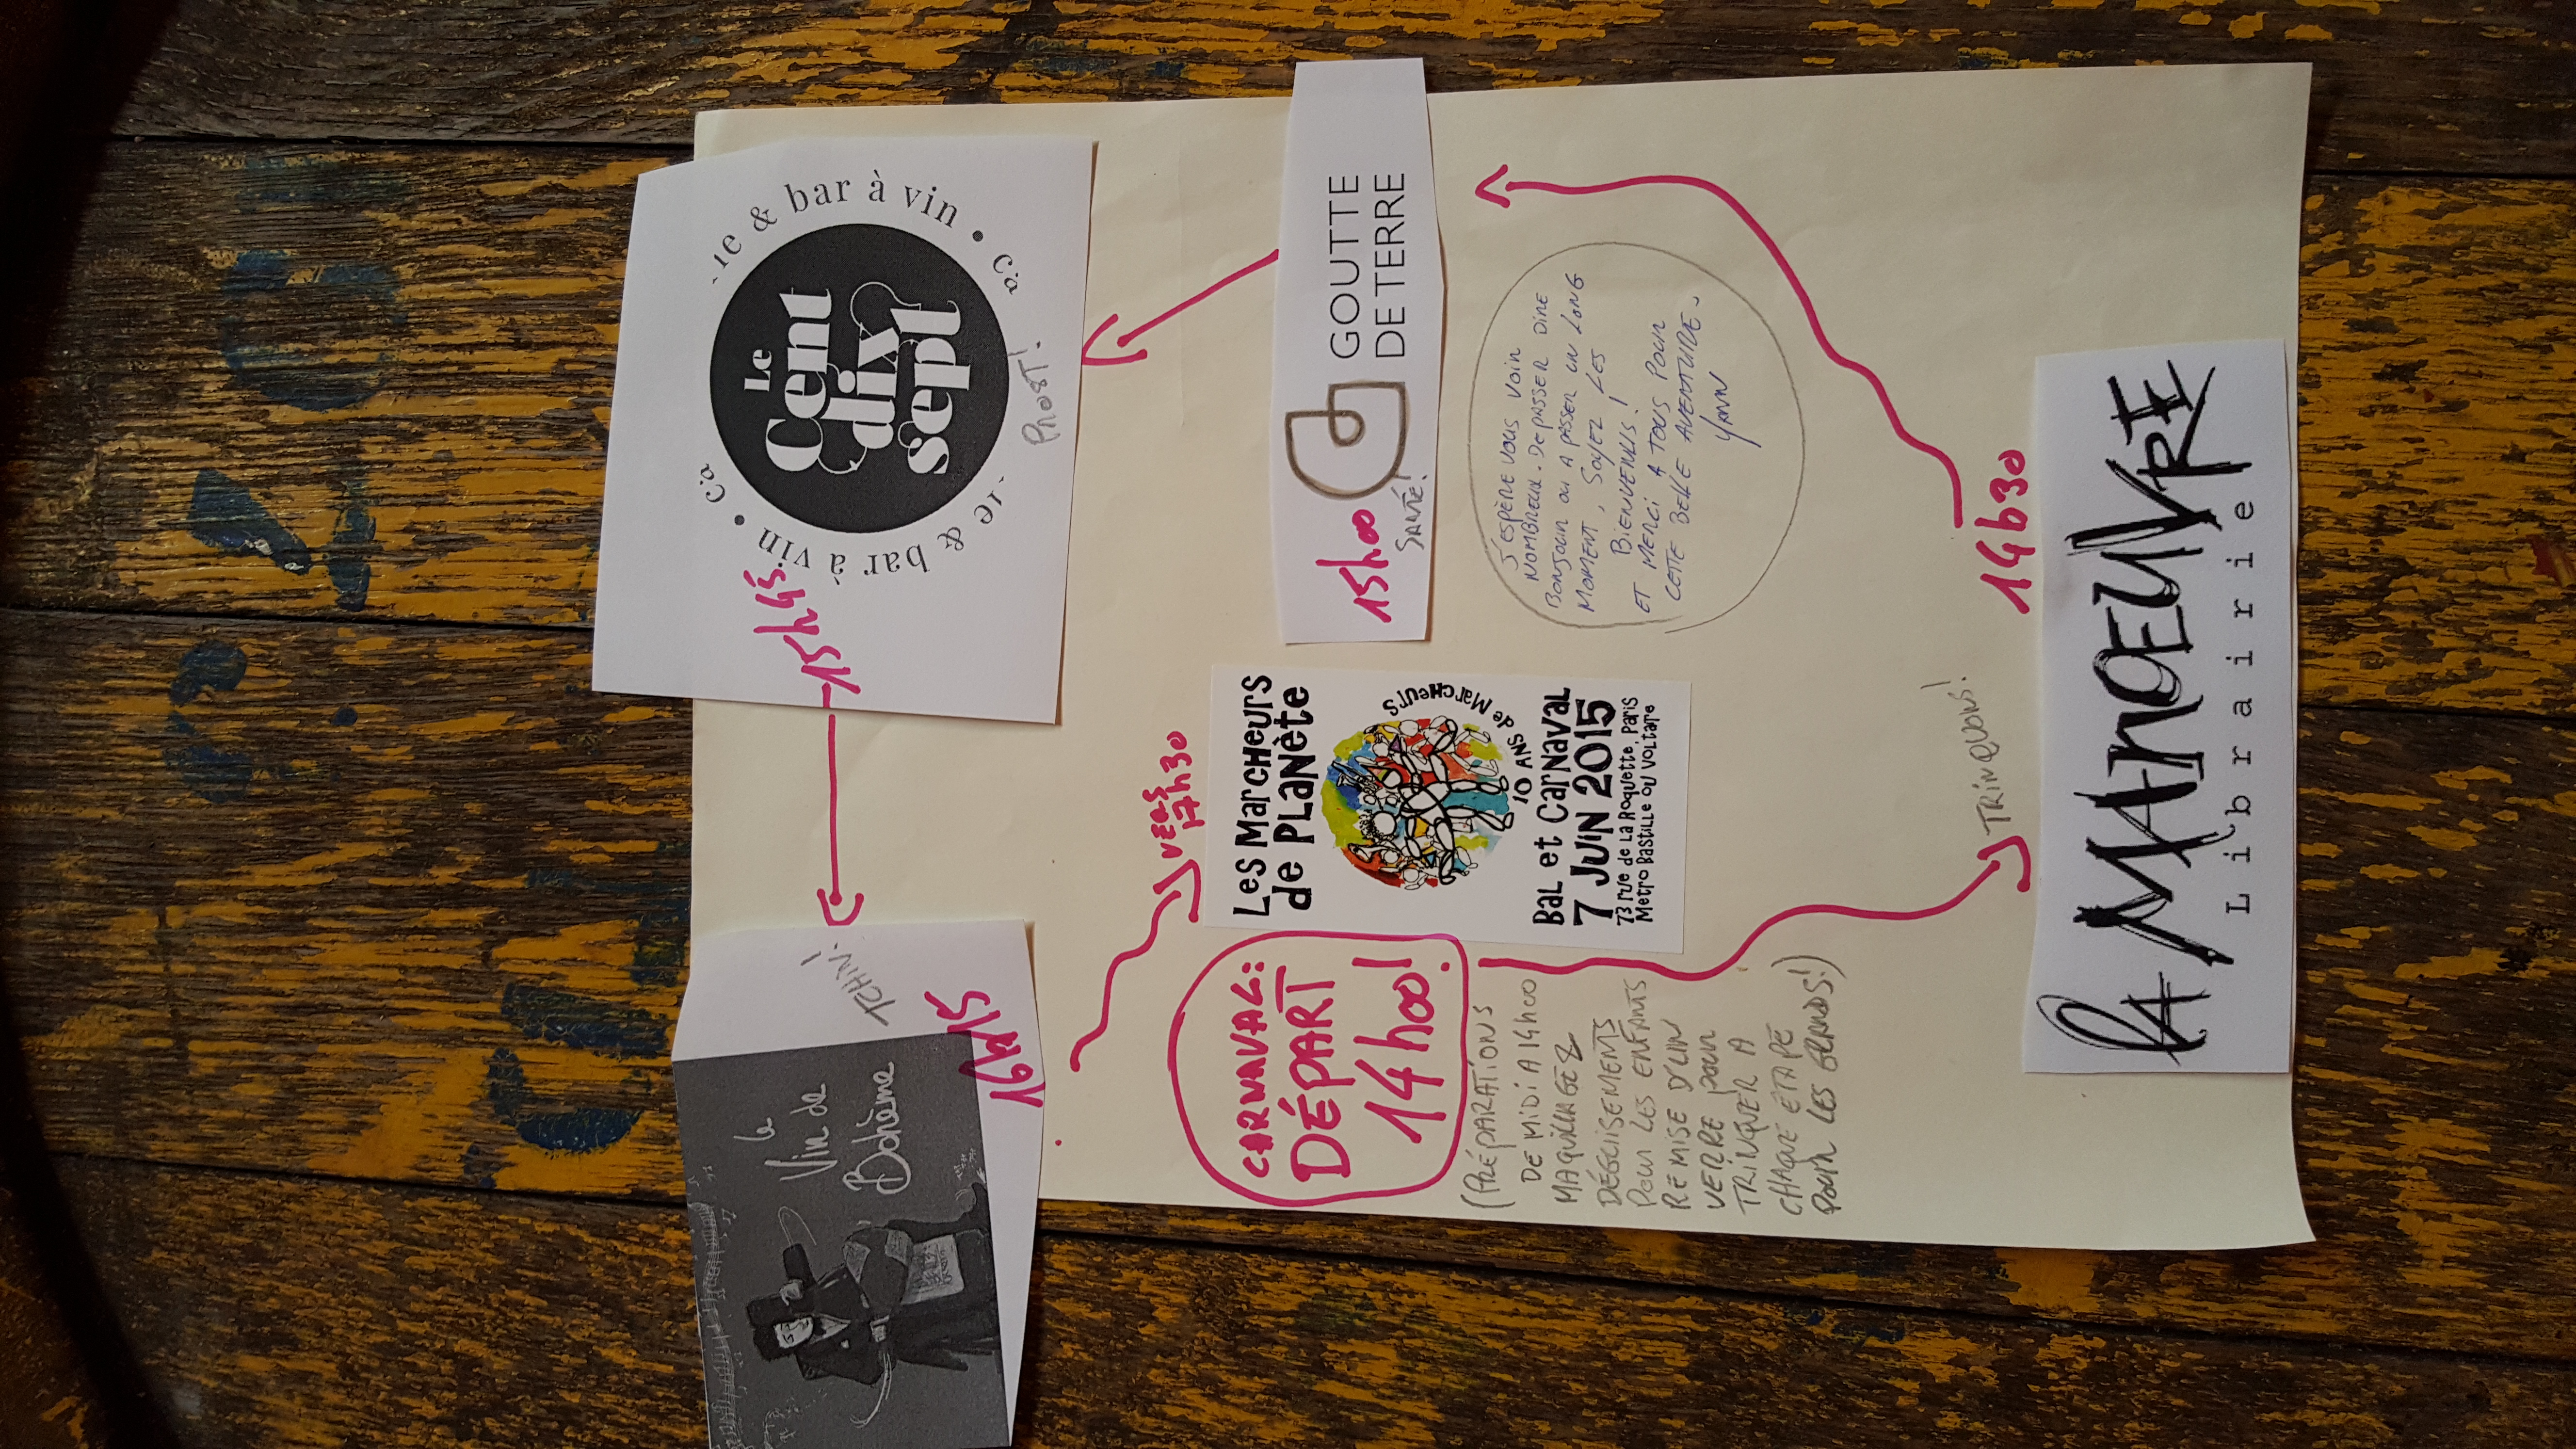 Le
Cent
dix
sept
ie & bar à vin • Ca
ie & bar à vin • Ca
PROST!
15h45
TCHIN!
16h15
le
Vin de
Bohème
GOUTTE
DE TERRE
15h00
SANTÉ!
VERS
17h30
LES MARCHEURS
de PLANÈTE
10 ANS de MARCHEURS
BAL et CARNAVAL
7 JUIN 2015
73 rue de LA ROQUETTE, PARIS
Metro BASTILLE ou VOLTAIRE
CARNAVAL:
DÉPART
14h00!
(PRÉPARATIONS
DE MIDI A 14h00
MAQUILLAGE &
DÉGUISEMENTS
POUR LES ENFANTS
REMISE D'UN
VERRE POUR
TRINQUER A
CHAQUE ÉTAPE
POUR LES GRANDS!)
J'ESPÈRE VOUS VOIR
NOMBREUX. DE PASSER DIRE
BONJOUR OU A PASSER UN LONG
MOMENT, SOYEZ LES
BIENVENUS!
ET MERCI A TOUS POUR
CETTE BELLE AVENTURE.
YANN
TRINQUONS!
14h30
LA MANOEUVRE
Librairie